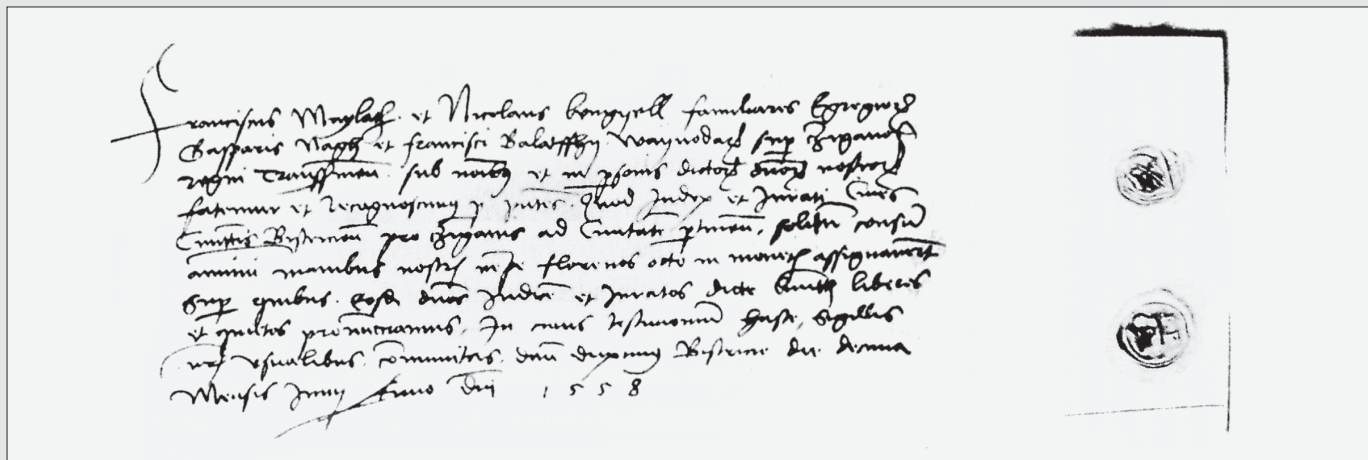 Franciscus Maylath et Nicolaus familiares Egregior
Gasparis Nagh et Francisci Balatffhy waywodar sup Ziganor
regni Transsilvan sub noibus et in psonis dictor duor nostror
fatemur et recognoscimus p pntes Quod Judex et Jurati Cives
Civittis Bistricien pro Ziganis ad Civitate ptinen solitu censu
manibus nostris florenos octo in moneta assignaverut
Sup quibus eosde duos Judice et Juratos dicte Civittis liberos
et quittos pronuctiamus In cuius testimoniu haste Sigillis
nris usualibus comunitas datu Bistricie die decima
Mensis Junii Anno Dni 1558